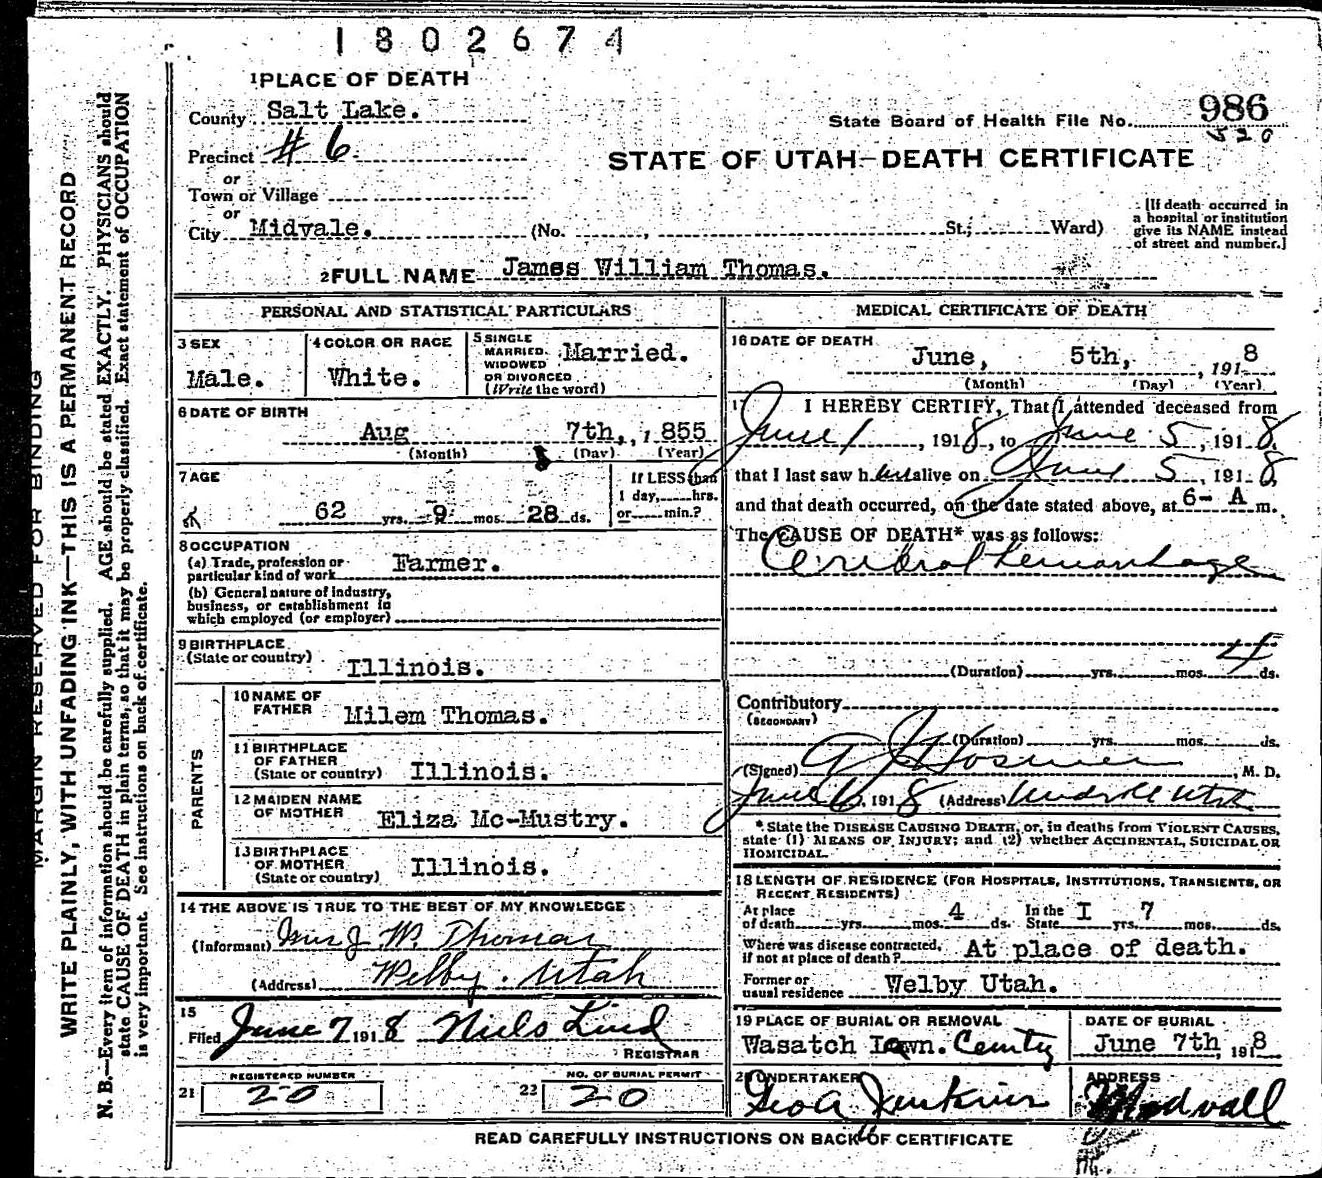 1802674
1 PLACE OF DEATH
County Salt Lake.
State Board of Health File No. 986
520
Precinct # 6
STATE OF UTAH—DEATH CERTIFICATE
or
Town or Village
or
City Midvale. (No. , St; Ward)
[If death occurred in
a hospital or institution
give its NAME instead
of street and number.]
2 FULL NAME James William Thomas.
PERSONAL AND STATISTICAL PARTICULARS
3 SEX
Male.
4 COLOR OR RACE
White.
5 SINGLE
MARRIED.
WIDOWED
OR DIVORCED
(Write the word)
Married.
6 DATE OF BIRTH
Aug 7th, , 1855
(Month) (Day) (Year)
7 AGE
62 yrs. 9 mos. 28 ds.
If LESS than
1 day, hrs.
or min.?
8 OCCUPATION
(a) Trade, profession or
particular kind of work Farmer.
(b) General nature of industry,
business, or establishment in
which employed (or employer)
9 BIRTHPLACE
(State or country) Illinois.
PARENTS
10 NAME OF
FATHER Milem Thomas.
11 BIRTHPLACE
OF FATHER
(State or country) Illinois.
12 MAIDEN NAME
OF MOTHER Eliza Mc-Mustry.
13 BIRTHPLACE
OF MOTHER
(State or country) Illinois.
14 THE ABOVE IS TRUE TO THE BEST OF MY KNOWLEDGE
(Informant) Mrs J. W. Thomas
(Address) Welby. Utah
15
Filed June 7 1918 Niels Lind
REGISTRAR
21 REGISTERED NUMBER
20
22 NO. OF BURIAL PERMIT
20
MEDICAL CERTIFICATE OF DEATH
16 DATE OF DEATH
June, 5th, , 1918
(Month) (Day) (Year)
17 I HEREBY CERTIFY, That I attended deceased from
June 1, 1918, to June 5, 1918,
that I last saw him alive on June 5, 1918,
and that death occurred, on the date stated above, at 6- A m.
The CAUSE OF DEATH* was as follows:
Cerebral Hemorrhage
4
(Duration) yrs. mos. ds.
Contributory
(SECONDARY)
(Duration) yrs. mos. ds.
(Signed) Hosmer, M. D.
June 6, 1918 (Address) Midvale Utah
*State the DISEASE CAUSING DEATH, or, in deaths from VIOLENT CAUSES,
state (1) MEANS OF INJURY; and (2) whether ACCIDENTAL, SUICIDAL OR
HOMICIDAL.
18 LENGTH OF RESIDENCE (FOR HOSPITALS, INSTITUTIONS, TRANSIENTS, OR
RECENT RESIDENTS)
At place
of death yrs. mos. 4 ds. In the
State I yrs. 7 mos. ds.
Where was disease contracted.
if not at place of death? At place of death.
Former or
usual residence Welby Utah.
19 PLACE OF BURIAL OR REMOVAL
Wasatch Lawn. Cemty
DATE OF BURIAL
June 7th, 1918
20 UNDERTAKER
Geo A Jenkins
ADDRESS
Midvall
READ CAREFULLY INSTRUCTIONS ON BACK OF CERTIFICATE
MARGIN RESERVED FOR BINDING
WRITE PLAINLY, WITH UNFADING INK—THIS IS A PERMANENT RECORD
N. B.—Every item of information should be carefully supplied. AGE should be stated EXACTLY. PHYSICIANS should
state CAUSE OF DEATH in plain terms, so that it may be properly classified. Exact statement of OCCUPATION
is very important. See instructions on back of certificate.